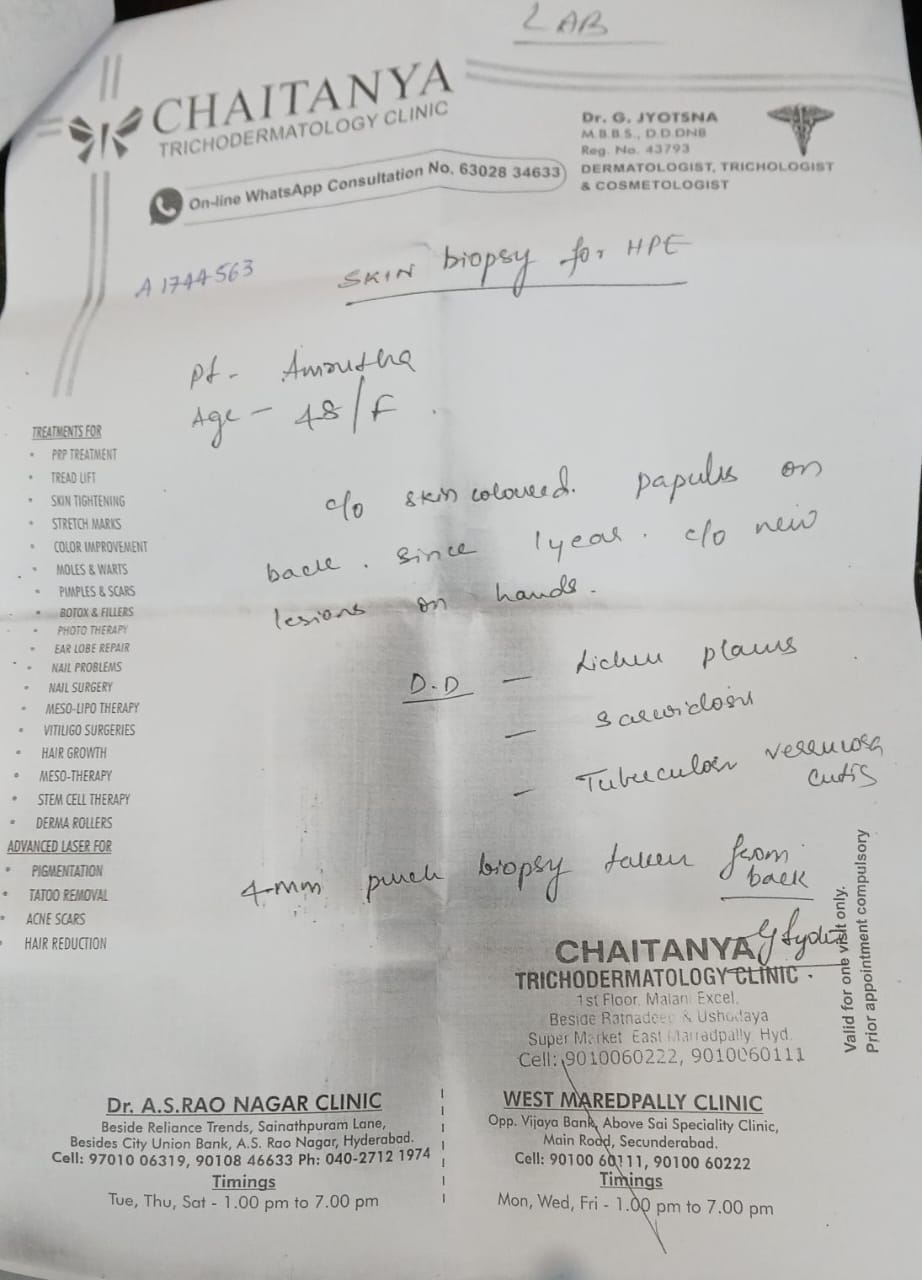 LAB
CHAITANYA
TRICHODERMATOLOGY CLINIC
On-line WhatsApp Consultation No. 63028 34633
Dr. G. JYOTSNA
M.B.B.S., D.D.DNB
Reg. No. 43793
DERMATOLOGIST, TRICHOLOGIST
& COSMETOLOGIST
A 1744563
SKIN biopsy for HPE
Pt - Amrutha
Age - 48/F
c/o skin coloured. papules on
back. since 1 year. c/o new
lesions on hands.
D.D - Lichen planus
- Sarcoidosis
- Tuberculosis verrucosa
cutis
4-mm punch biopsy taken from
back
TREATMENTS FOR
• PRP TREATMENT
• TREAD LIFT
• SKIN TIGHTENING
• STRETCH MARKS
• COLOR IMPROVEMENT
• MOLES & WARTS
• PIMPLES & SCARS
• BOTOX & FILLERS
• PHOTO THERAPY
• EAR LOBE REPAIR
• NAIL PROBLEMS
• NAIL SURGERY
• MESO-LIPO THERAPY
• VITILIGO SURGERIES
• HAIR GROWTH
• MESO-THERAPY
• STEM CELL THERAPY
• DERMA ROLLERS
ADVANCED LASER FOR
• PIGMENTATION
• TATOO REMOVAL
• ACNE SCARS
• HAIR REDUCTION
CHAITANYA
TRICHODERMATOLOGY CLINIC
1st Floor, Malani Excel,
Beside Ratnadeep & Ushodaya
Super Market East Marradpally, Hyd.
Cell: 9010060222, 9010060111
Valid for one visit only.
Prior appointment compulsory
Dr. A.S.RAO NAGAR CLINIC
Beside Reliance Trends, Sainathpuram Lane,
Besides City Union Bank, A.S. Rao Nagar, Hyderabad.
Cell: 97010 06319, 90108 46633 Ph: 040-2712 1974
Timings
Tue, Thu, Sat - 1.00 pm to 7.00 pm
WEST MAREDPALLY CLINIC
Opp. Vijaya Bank, Above Sai Speciality Clinic,
Main Road, Secunderabad.
Cell: 90100 60111, 90100 60222
Timings
Mon, Wed, Fri - 1.00 pm to 7.00 pm